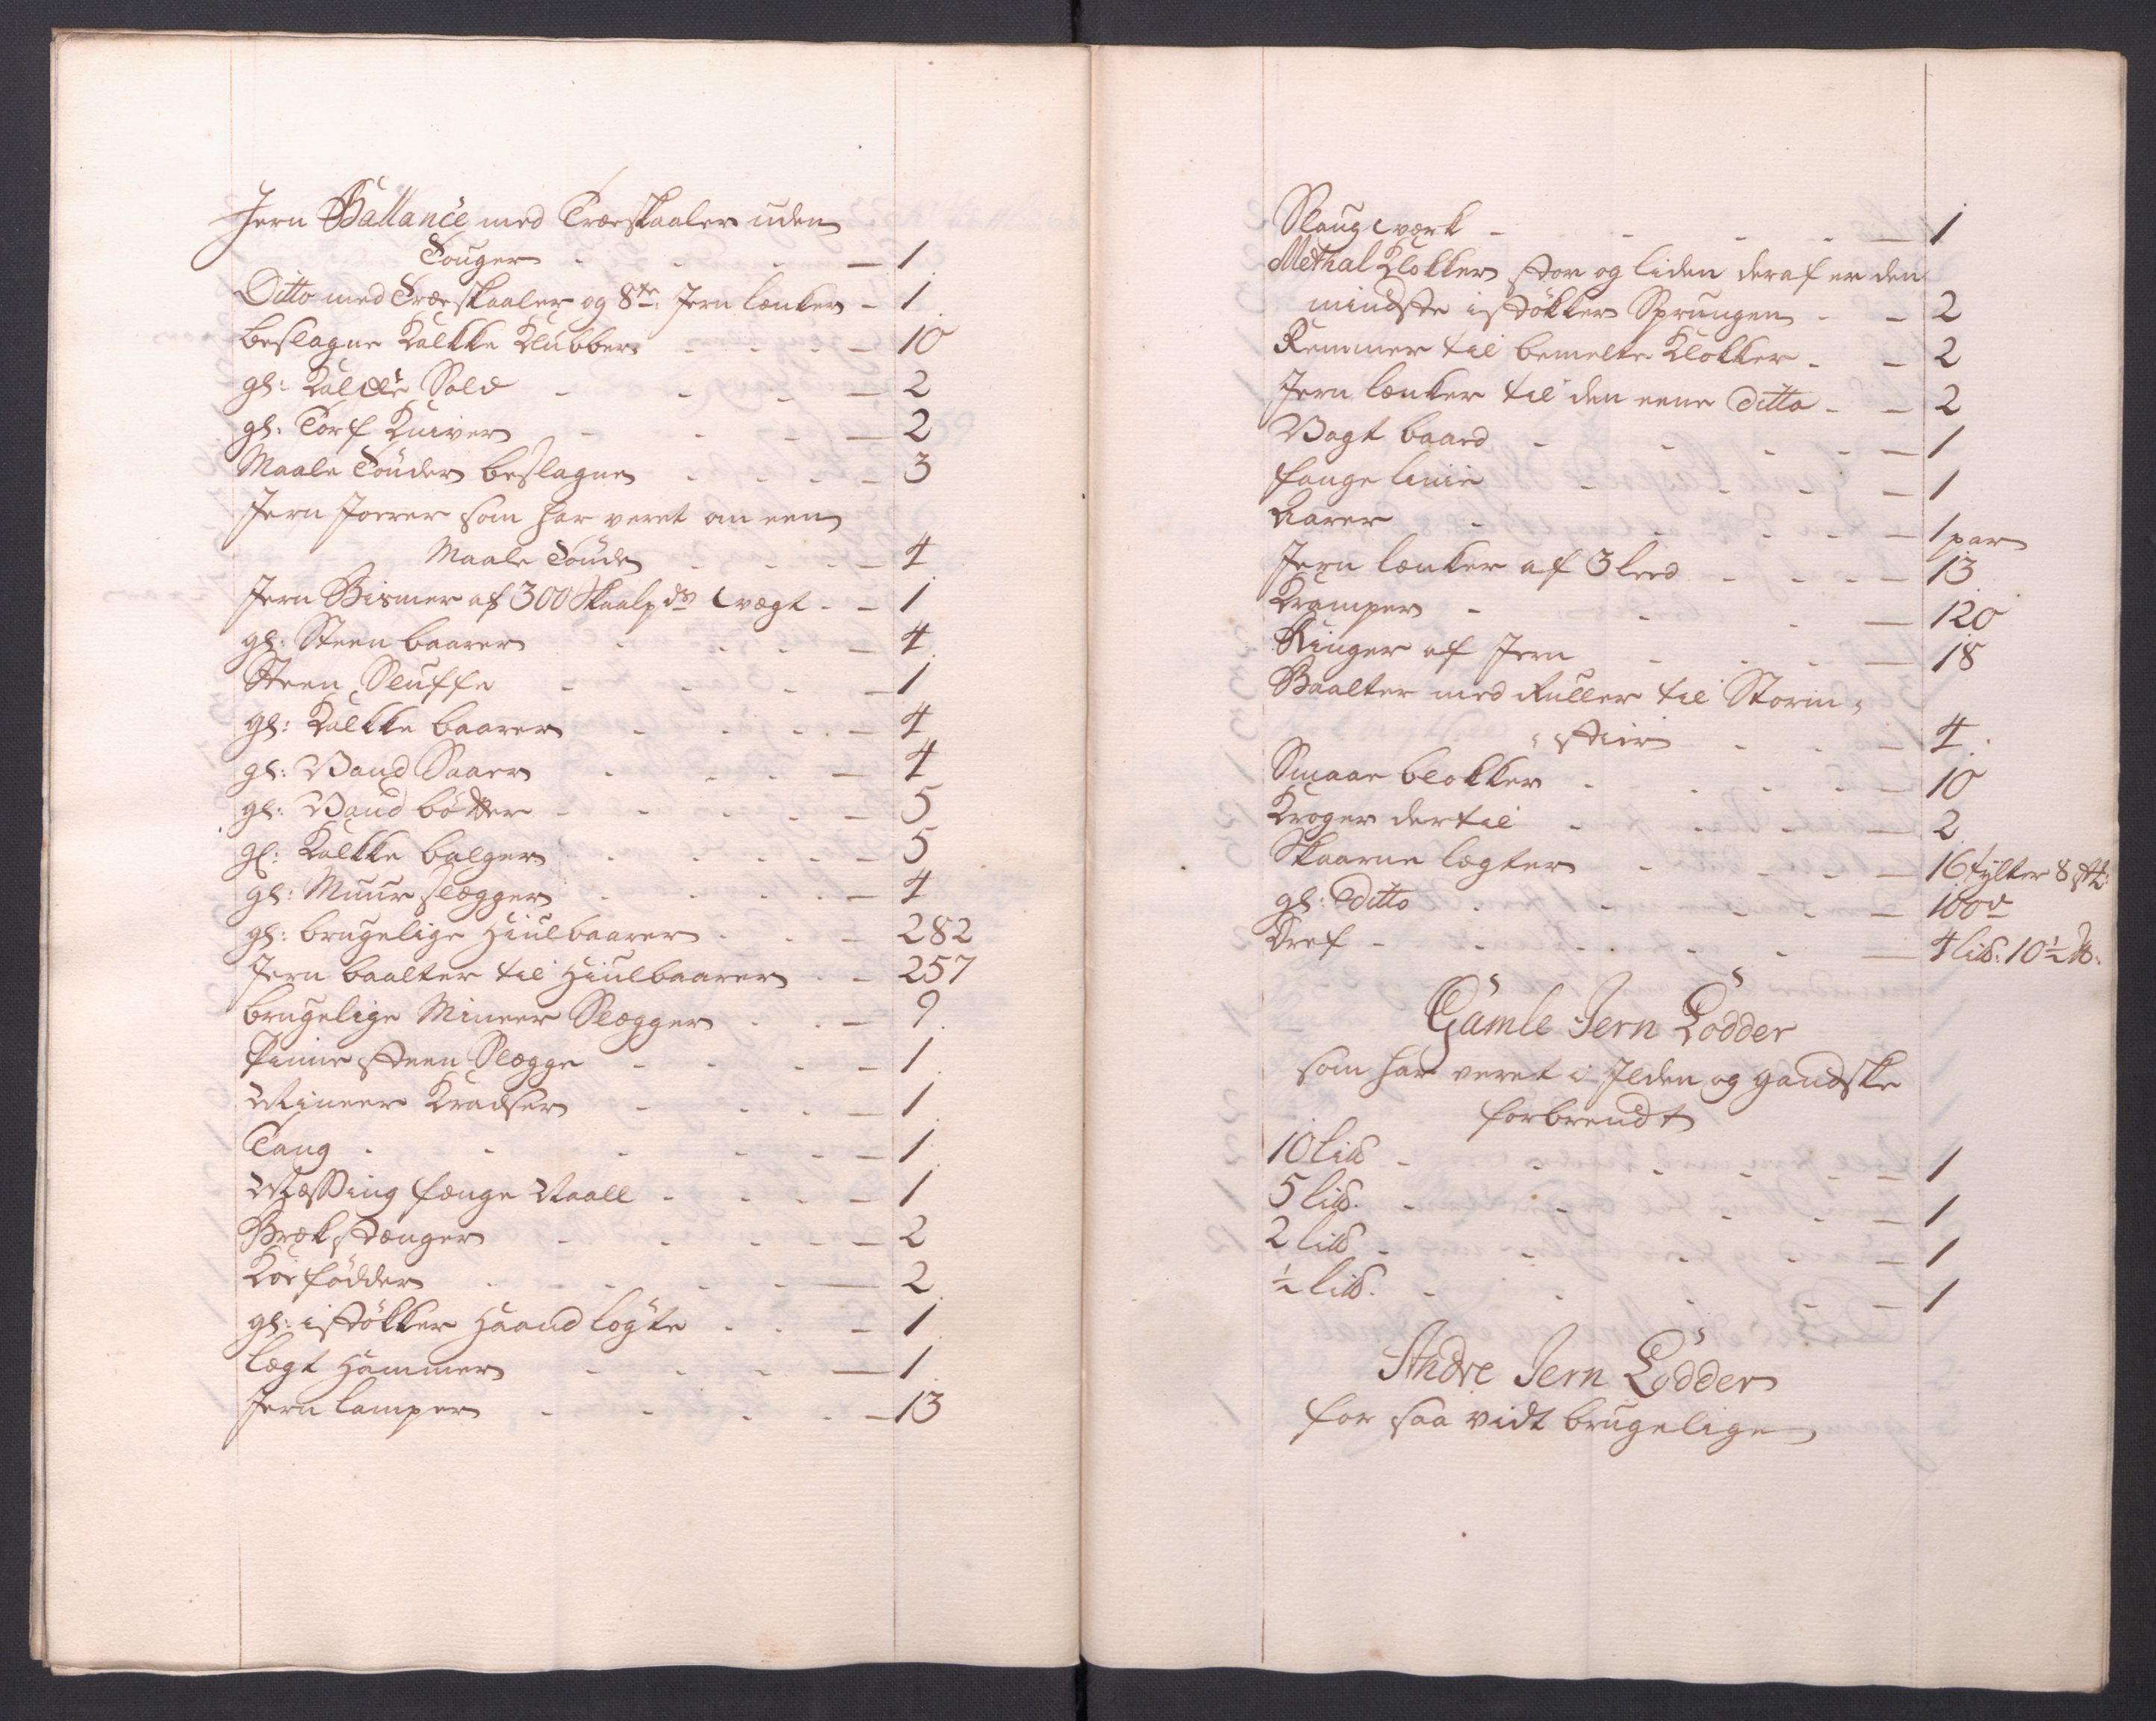 Jern Ballance med Træeskaaler uden
Touger - - - - 1
Ditto med Træeskaaler og 8te: Jern lænker - 1
beslagne Kalkke Klubber - - - - 10
gl: Kalcke Sold - - - - 2
gl: Torf Kniver - - - - 2
Maale Tönder beslagne - - - - 3
Jern Joerer som har veret om een
Maale Tönde - - - - 4
Jern Bismer af 300 Skaalpds Vægt - - 1
gl: Steen baarer - - - - 4
Steen Sluffe - - - - 1
gl: Kalkke baarer - - - - 4
gl: Vand Saaer - - - - 4
gl: Vand bötter - - - - 5
gl: Kalkke balger - - - - 5
gl: Muur slægger - - - - 4
gl: brugelige Hiulbaarer - - - 282
Jern baalter til Hiulbaarer - - 257
brugelige Mineer Slægger - - - 9
Kiine Steen Slægge - - - - 1
Mineer Kradser - - - - 1
Tang - - - - 1
Messing fænge Naall - - - - 1
Bræk stænger - - - - 2
Koe födder - - - - 2
gl: i stökker Haand lögte - - - 1
lægt Hammer - - - - 1
Jern lamper - - - - 13
Slaug værk - - - - 1
Methal Klokker stor og liden deraf er den
mindste i stökker Sprungen - - 2
Remmer til bemelte Klokker - - 2
Jern lænker til den eene ditto - - 2
Vagt baard - - - - 1
fange linie - - - - 1
Aarer - - - - 1 par
Jern lænker af 3 leed - - - - 13
Kramper - - - - 120
Ringer af Jern - - - - 18
Baalter med Ruller til Storm-
stier - - - 4
Smaae blokker - - - - 10
Kroger dertil - - - - 2
Skaarne lægter - - - - 16 tylter 8 stk:
gl: ditto - - - - 100de
Dref - - - - 4 lib: 10½ lb:
Gamle Jern Lodder
som har veret i Ilden og gandske
forbrendt
10 lib - - - - 1
5 lib. - - - - 1
2 lib - - - - 1
½ lib. - - - - 1
Andre Jern Lodder
for saa vidt brugelige